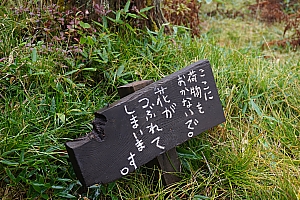 ここに
荷物を
おかないで。
花が
つぶれて
しまいます。